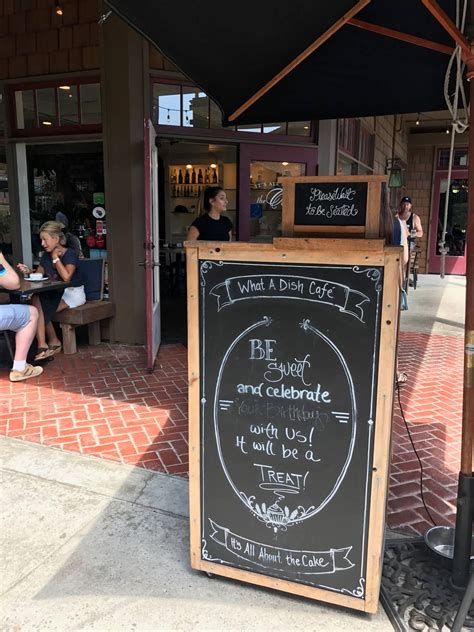 Please WAIT
to be seated
What A Dish Café
BE
sweet
and celebrate
Your Birthday
with Us!
It will be a
TREAT!
It's All About the Cake